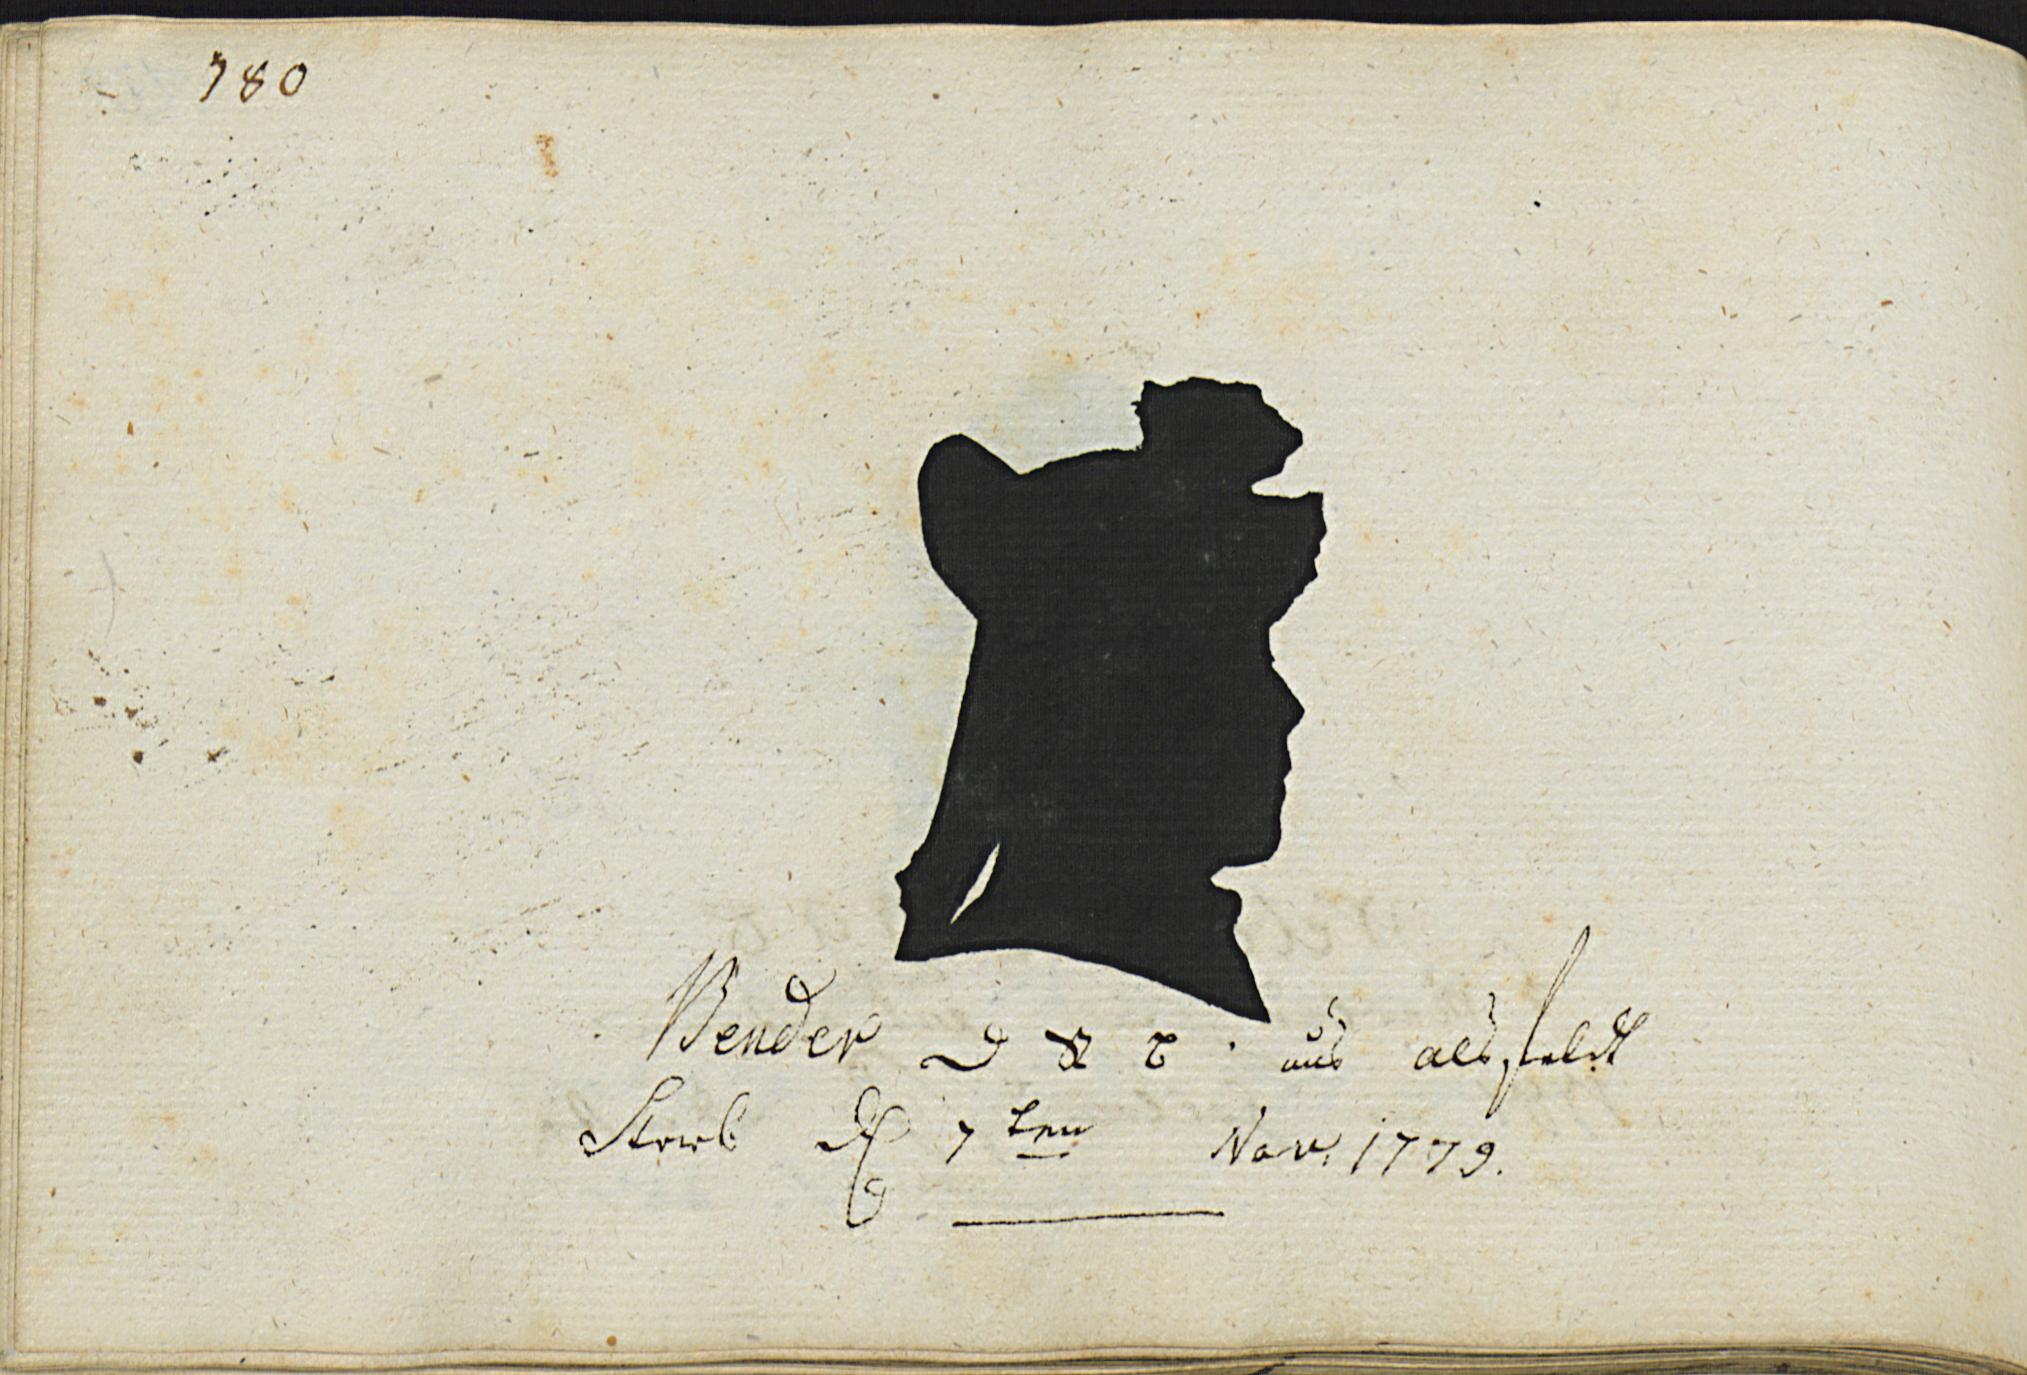 780
Bender D R C. aus alsfeldt
Starb d 7ten Nov. 1779.